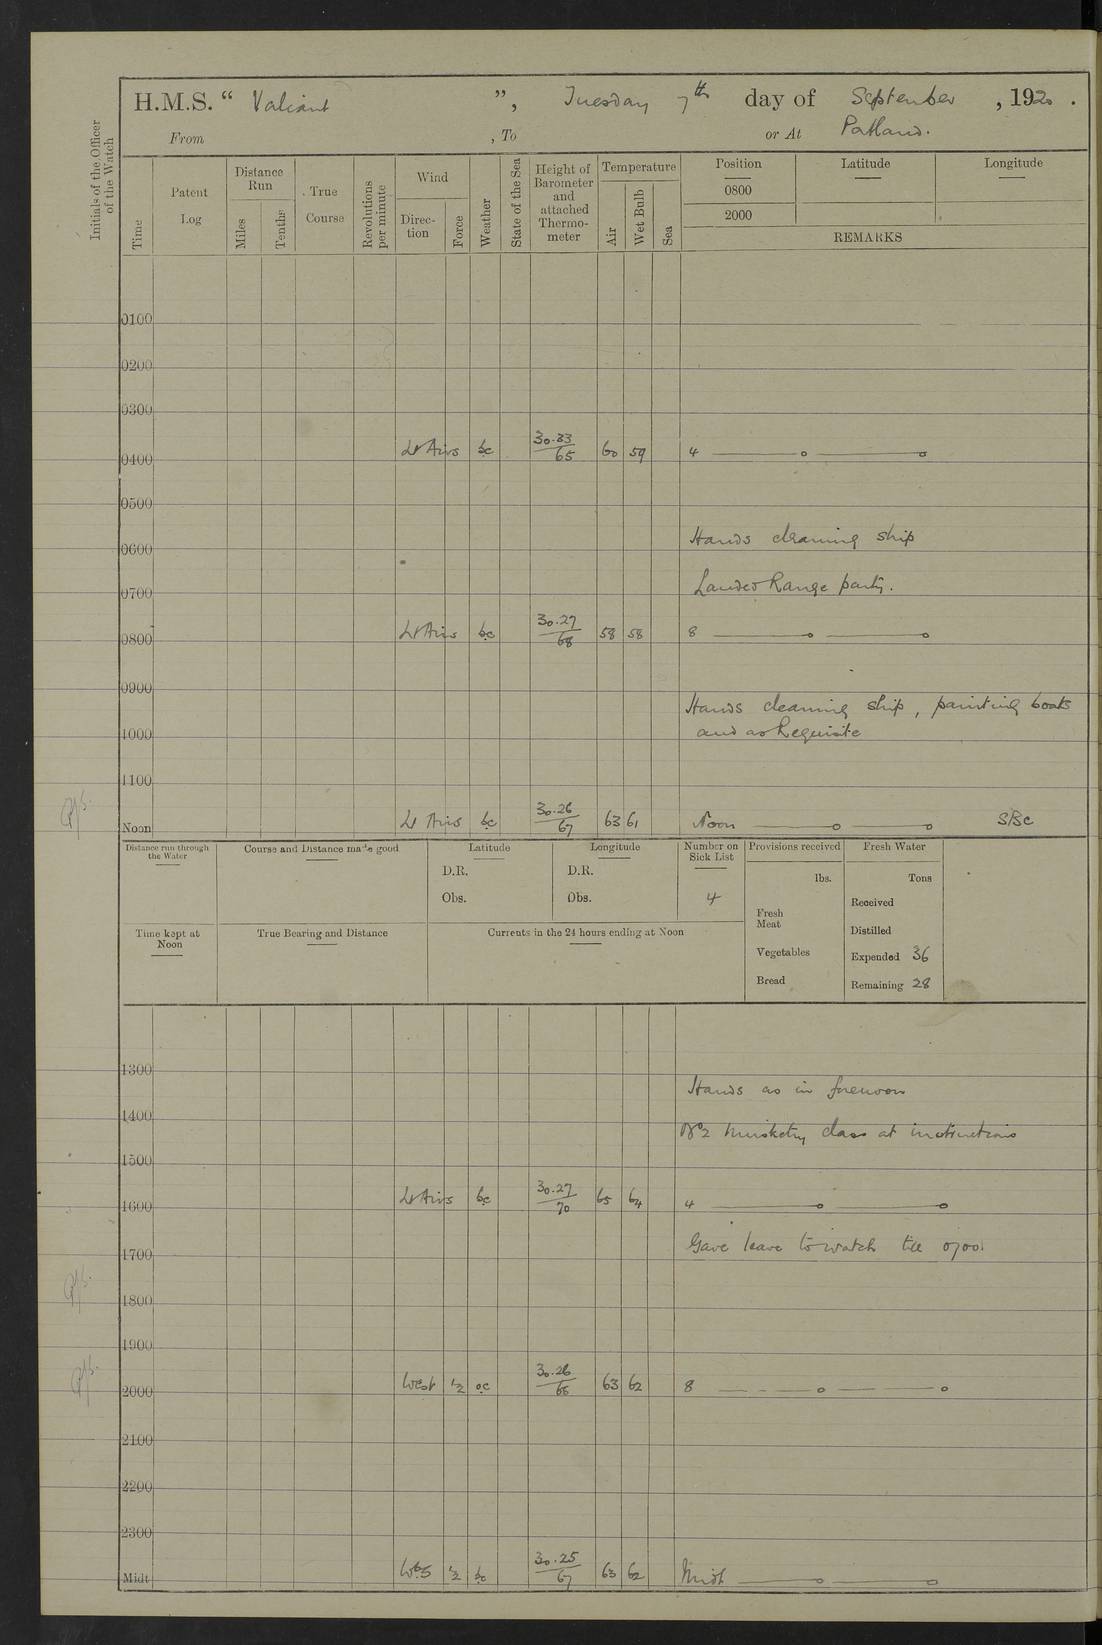 H.M.S. “ Valiant ”, Tuesday 7th day of September , 1920 .
From , To or At Portland.
Initials of the Officer of the Watch
Time
Patent Log
Distance Run
Miles
Tenths
True Course
Revolutions per minute
Wind
Direc-tion
Force
Weather
State of the Sea
Height of Barometer and attached Thermo-meter
Temperature
Air
Wet Bulb
Sea
Position Latitude Longitude
0800
2000
REMARKS
0100
0200
0300
0400 Lt Airs bc 30.33/65 60 59 4
0500
Hands cleaning ship
0600
Landed Range party.
0700
0800 Lt Airs bc 30.27/68 58 58 8
0900
Hands cleaning ship, painting boats
and as Requisite
1000
1100
Noon Lt Airs bc 30.26/67 63 61 Noon SBC
Distance run through the Water
Course and Distance made good
Latitude
D.R.
Obs.
Longitude
D.R.
Obs.
Number on Sick List
4
Provisions received
lbs.
Fresh Meat
Vegetables
Bread
Fresh Water
Tons
Received
Distilled
Expended 36
Remaining 28
Time kept at Noon
True Bearing and Distance
Currents in the 24 hours ending at Noon
1300
Hands as in forenoon
1400
No 2 Musketry class at instructions
1500
1600 Lt Airs bc 30.27/70 65 64 4
Gave leave to watch till 0700
1700
1800
1900
2000 West ½ oc 30.26/66 63 62 8
2100
2200
2300
Midt WbS ½ bc 30.25/67 63 62 Midt